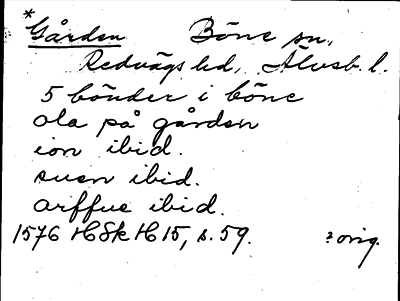 *Gården Böne sn,
Redvägs hd, Älvsb. l.
5 bönder i böne
ola på gården
ion ibid.
suen ibid.
arffue ibid.
1576 HSk H 15, s. 59. ? orig.